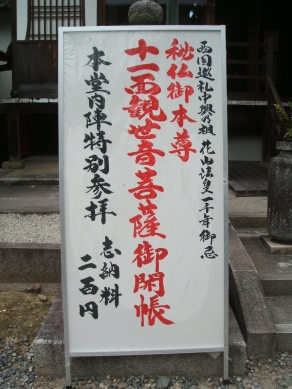 西国巡礼中興の祖 花山法皇一千年御忌
秘仏御本尊
十一面観世音菩薩御開帳
本堂内陣特別参拝
志納料
二百円